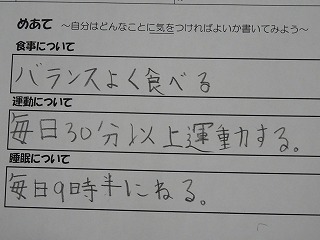 めあて ～自分はどんなことに気をつければよいか書いてみよう～
食事について
バランスよく食べる
運動について
毎日30分以上運動する。
睡眠について
毎日9時半にねる。